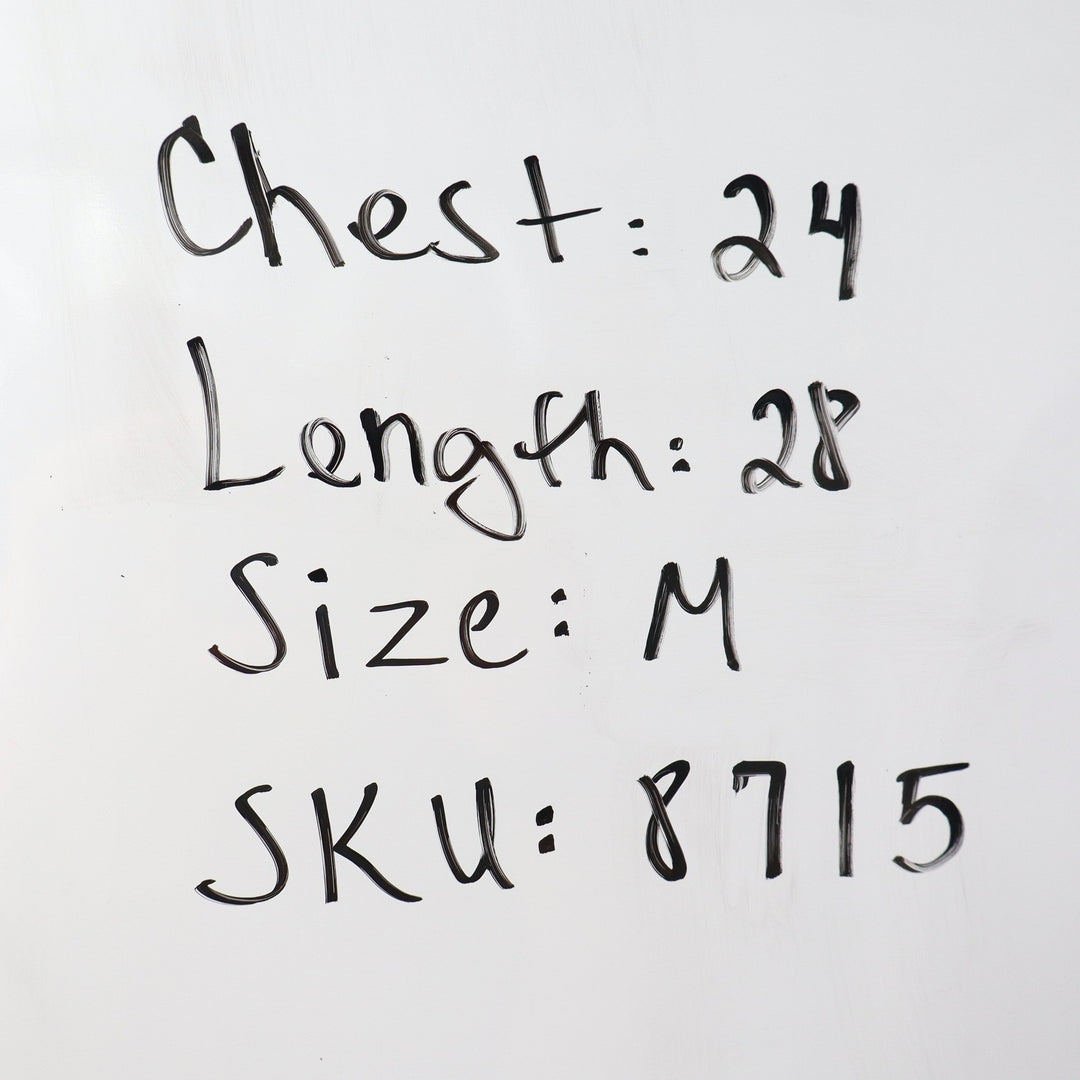 Chest: 24
Length: 28
Size: M
SKU: 8715